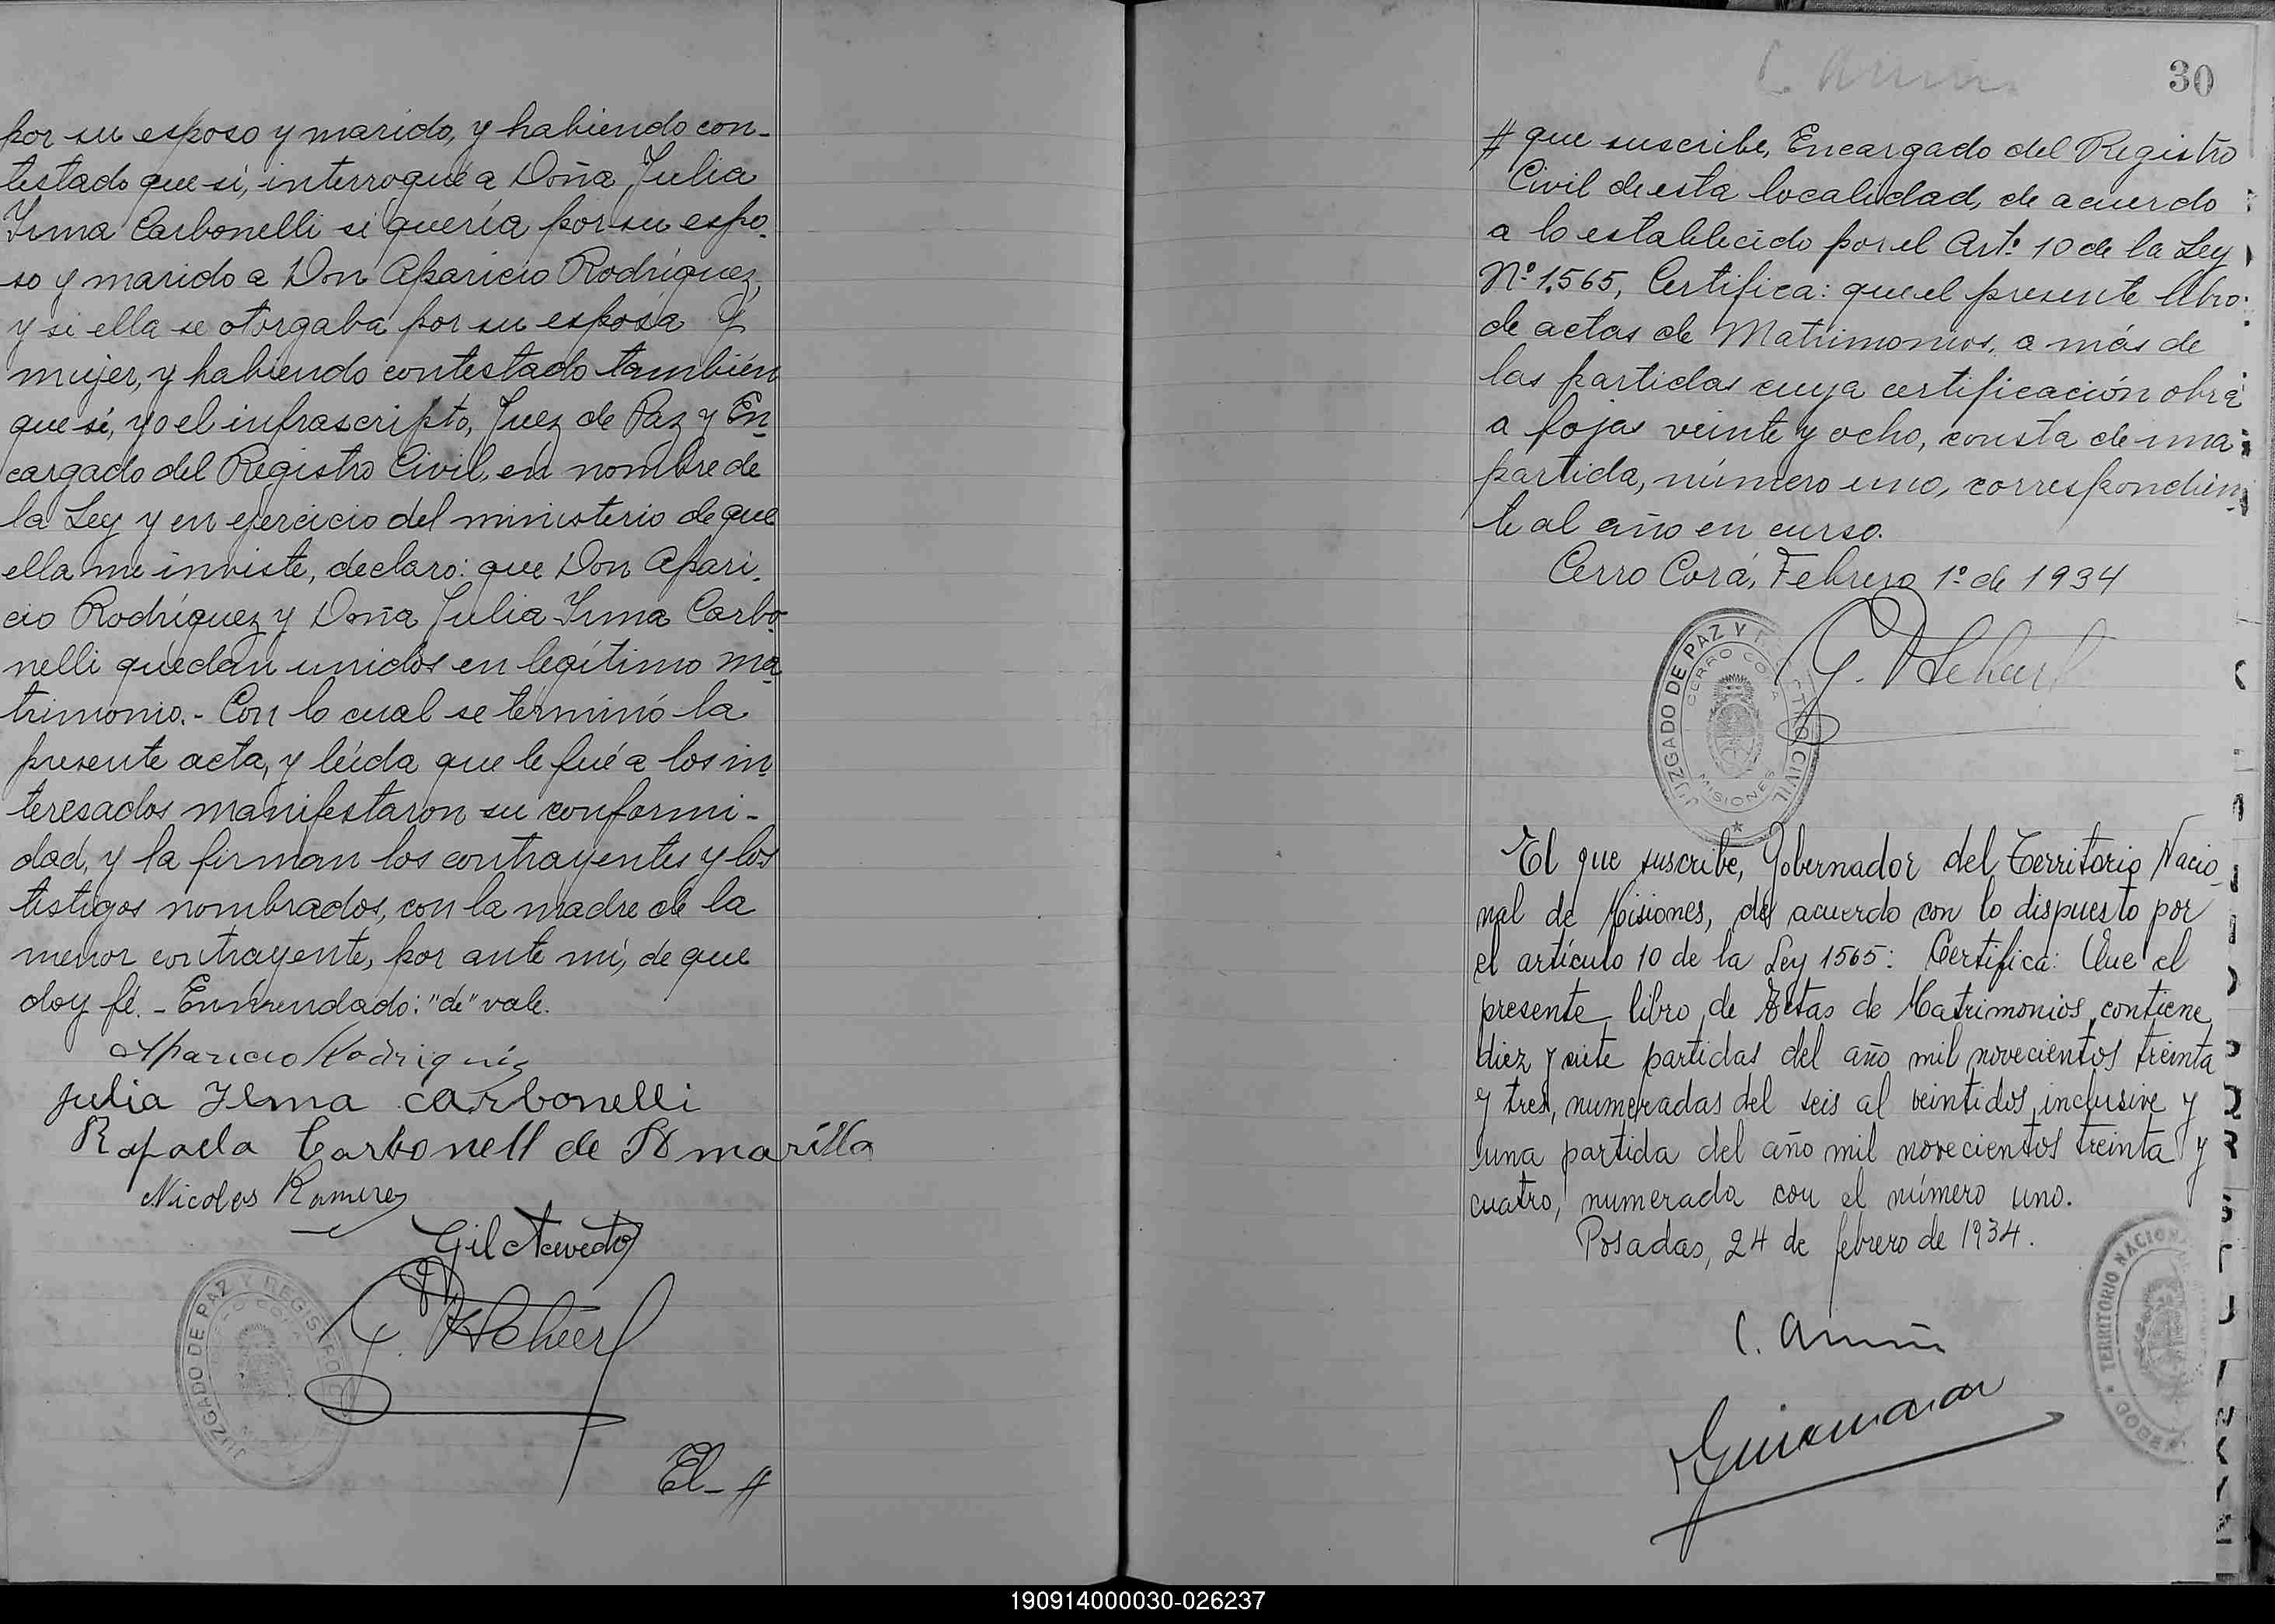 por su esposo y marido, y habiendo con-
testado que sí, interrogué a Doña Julia
Irma Carbonelli si quería por su espo-
so y marido a Don Aparicio Rodríguez,
y si ella se otorgaba por su esposa y
mujer, y habiendo contestado también
que sí, yo el infrascripto, Juez de Paz y En-
cargado del Registro Civil, en nombre de
la Ley y en ejercicio del ministerio de que
ella me inviste, declaro: que Don Apari-
cio Rodríguez y Doña Julia Irma Carbo-
nelli quedan unidos en legítimo ma-
trimonio.- Con lo cual se terminó la
presente acta, y leída que le fué a los in-
teresados manifestaron su conformi-
dad, y la firman los contrayentes y los
testigos nombrados, con la madre de la
menor contrayente, por ante mí, de que
doy fé.- Enmendado: "de" vale.
Aparicio Rodriguez
Julia Irma Carbonelli
Rafaela Carbonell de Amarilla
Nicolas Ramirez
Gil Acevedo
JUZGADO DE PAZ Y REGISTRO CIVIL
El- #
30
# que suscribe, Encargado del Registro
Civil de esta localidad, de acuerdo
a lo establecido por el Art.º 10 de la Ley
Nº 1.565, Certifica: que el presente libro
de actas de Matrimonios, a más de
las partidas cuya certificación obra
a fojas veinte y ocho, consta de una
partida, número uno, correspondien-
te al año en curso.
Cerro Corá, Febrero 1º de 1934
JUZGADO DE PAZ Y REGISTRO CIVIL
CERRO CORA
MISIONES
El que suscribe, Gobernador del Territorio Nacio-
nal de Misiones, de acuerdo con lo dispuesto por
el artículo 10 de la Ley 1565: Certifica: Que el
presente libro de Actas de Matrimonios, contiene
diez y siete partidas del año mil novecientos treinta
y tres, numeradas del seis al veintidos inclusive y
una partida del año mil novecientos treinta y
cuatro, numerada con el número uno.
Posadas, 24 de febrero de 1934.
TERRITORIO NACIONAL
190914000030-026237